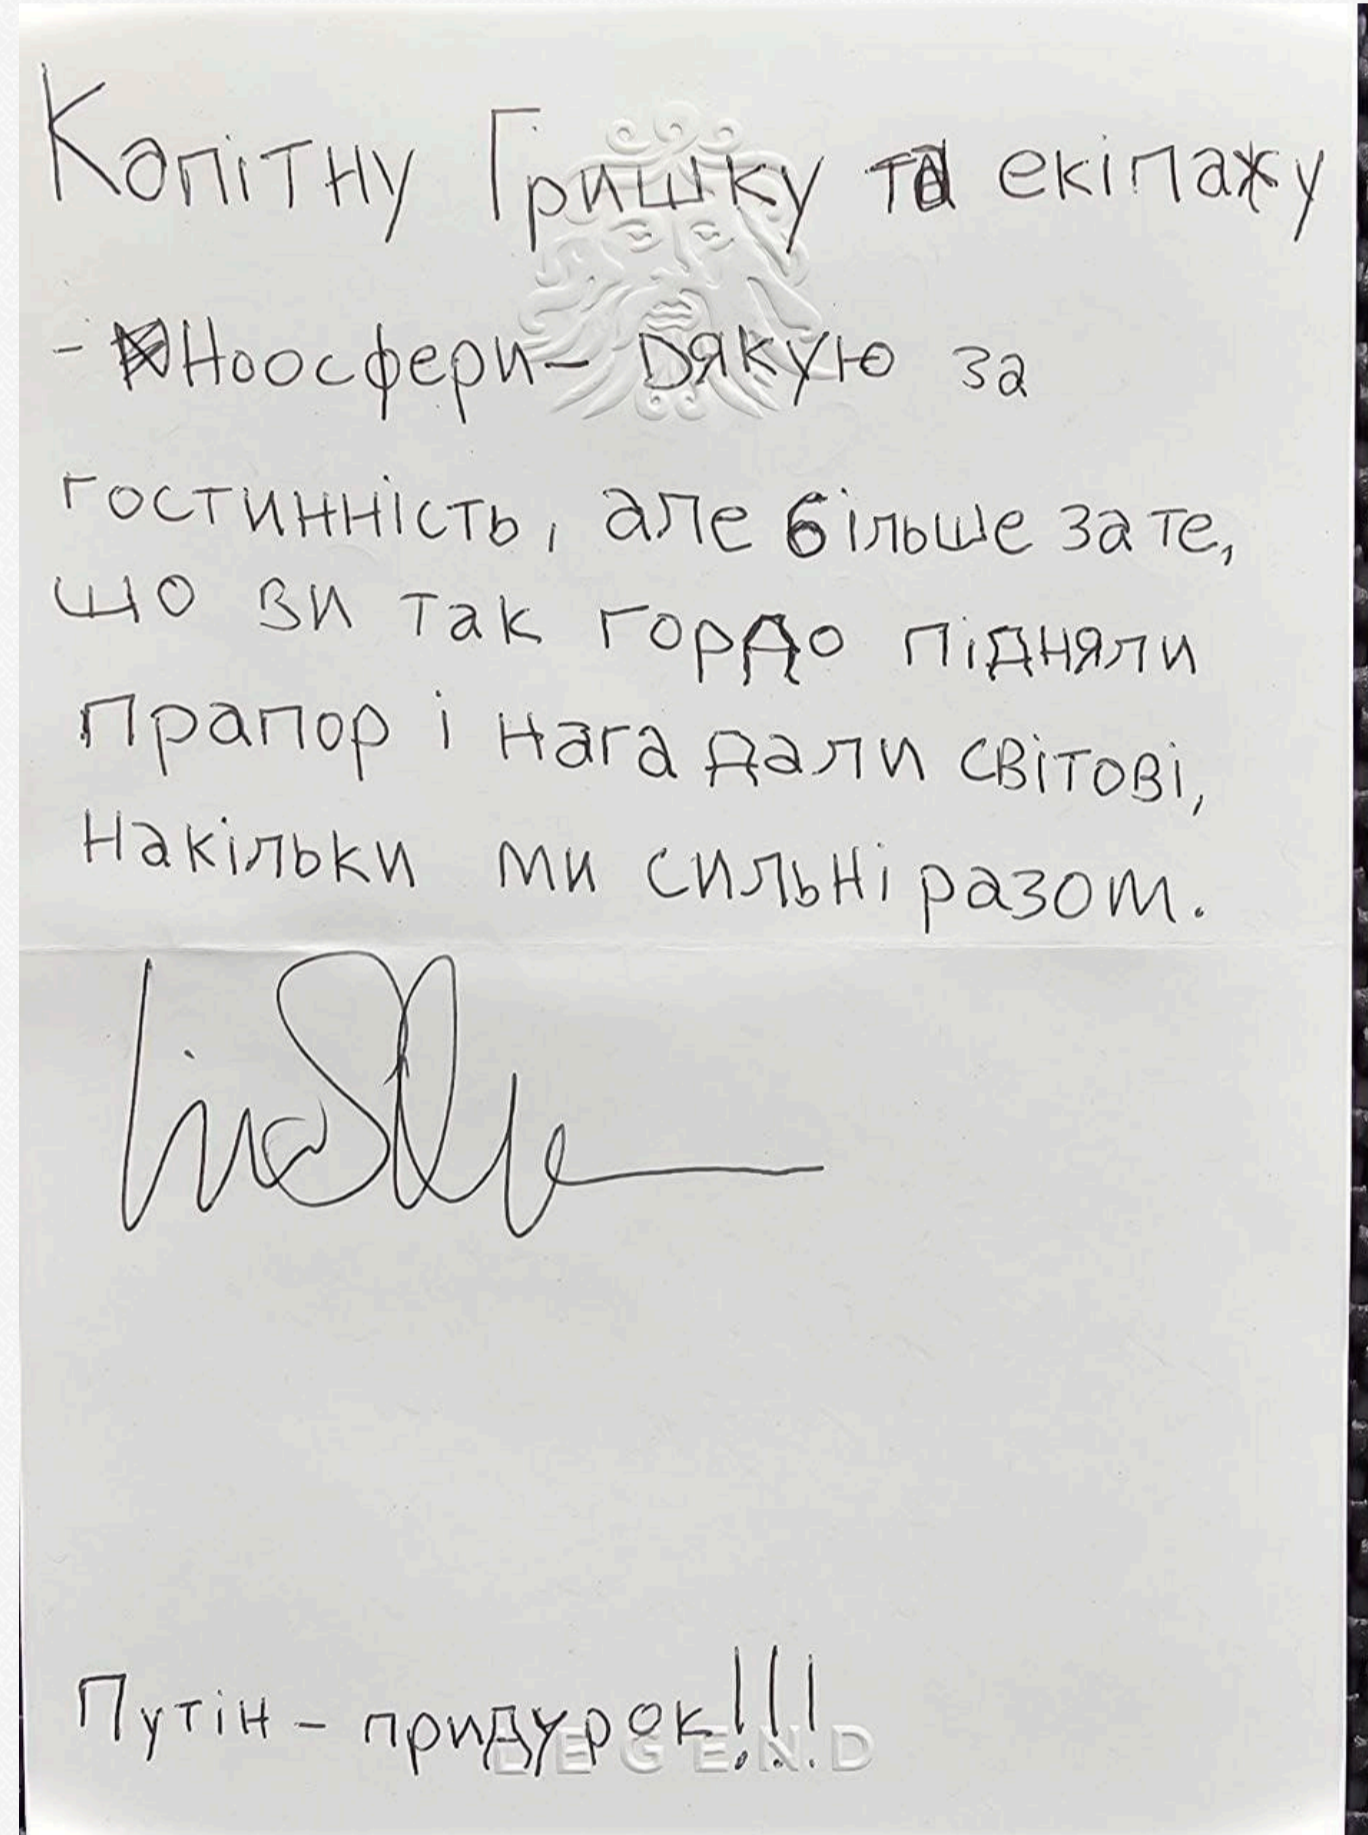 Капітну Гришку та екіпажу
- Ноосфери - Дякую за
гостинність, але більше за те,
що ви так гордо підняли
прапор і нагадали світові,
накільки ми сильні разом.
Путін - придурок!!!
LEGEND